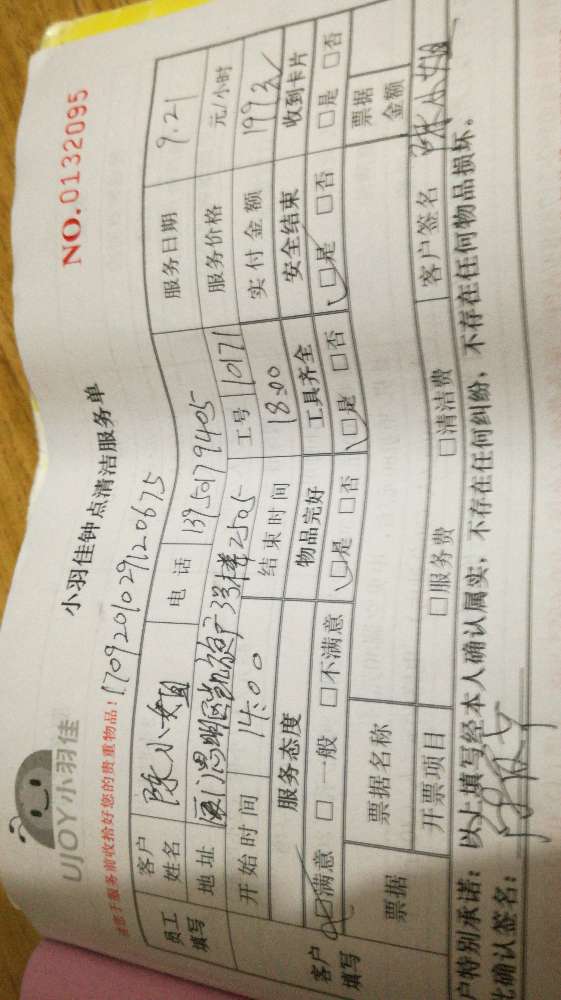 UJOY小羽佳
小羽佳钟点清洁服务单
NO.0132095
请您于服务前收拾好您的贵重物品! 1709201029120675
员工填写
客户姓名 陈小姐 电话 13950179405 服务日期 9.21
地址 厦门湖明 3号楼2505 工号 10171 服务价格 元/小时
开始时间 14:00 结束时间 18:00 实付金额 199元
客户填写
服务态度 物品完好 工具齐全 安全结束 收到卡片
☑满意 □一般 □不满意 ☑是 □否 ☑是 □否 ☑是 □否 □是 □否
票据 票据名称 票据金额
开票项目 □服务费 □清洁费 客户签名 陈小姐
户特别承诺: 以上填写经本人确认属实,不存在任何纠纷,不存在任何物品损坏。
此确认签名: